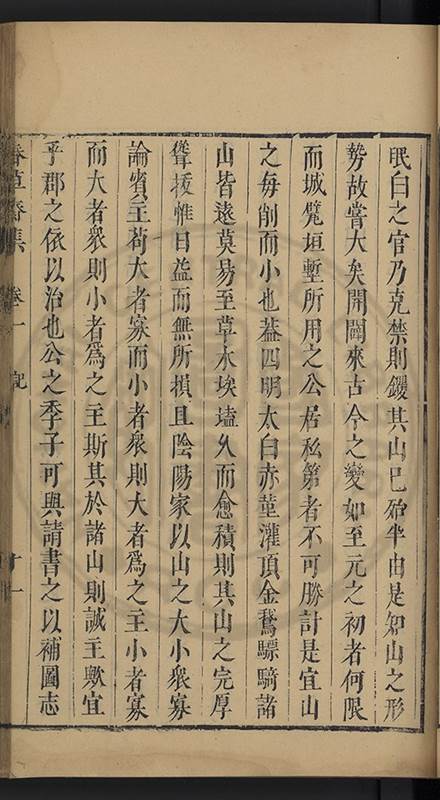 眠白之官乃克禁則鑁其山已殆半由是知山之形
勢故嘗大矣開闢來古今之變如至元之初者何限
而城甓垣塹所用之公居私第者不可勝計是宜山
之每削而小也葢四明太白赤堇灌頂金鵞驃騎諸
山皆遠莫易至草木埃𡏖乆而愈積則其山之完厚
聳拔惟日益而無所損且陰陽家以山之大小衆寡
論賓主茍大者寡而小者衆則大者爲之主小者寡
而大者衆則小者爲之主斯其於諸山則誠主歟宜
乎郡之依以治也公之季子可與請書之以補圖志
春草齋集 卷十 記 十一